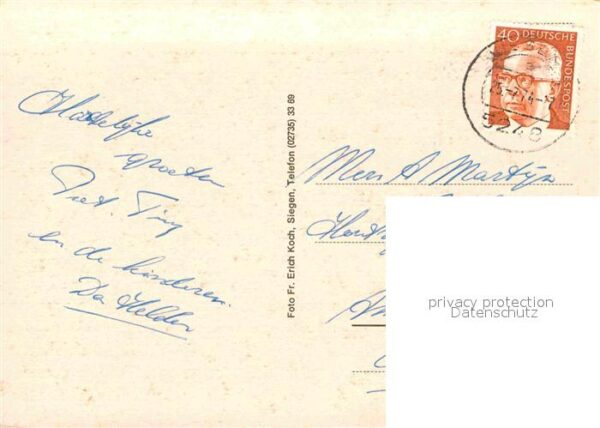 Hartelijke
groeten
Piet. Tiny
en de kinderen.
Den Helder
Foto Fr. Erich Koch, Siegen, Telefon (02735) 33 69
40 DEUTSCHE BUNDESPOST
5248
A Martijn
privacy protection
Datenschutz